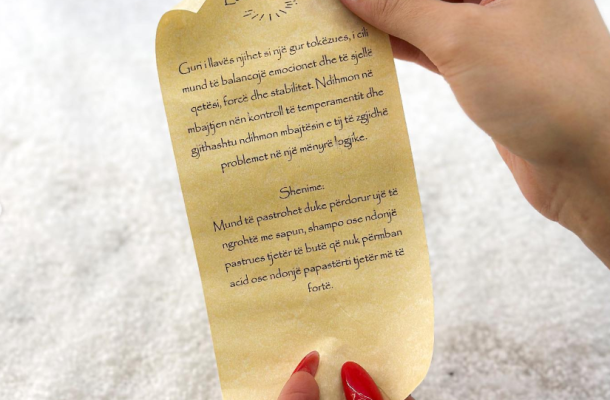 Guri i llavës njihet si një gur tokëzues, i cili
mund të balancojë emocionet dhe të sjellë
qetësi, forcë dhe stabilitet. Ndihmon në
mbajtjen nën kontroll të temperamentit dhe
gjithashtu ndihmon mbajtësin e tij të zgjidhë
problemet në një mënyrë logjike.
Shenime:
Mund të pastrohet duke përdorur ujë të
ngrohtë me sapun, shampo ose ndonjë
pastrues tjetër të butë që nuk përmban
acid ose ndonjë papastërti tjetër më të
fortë.